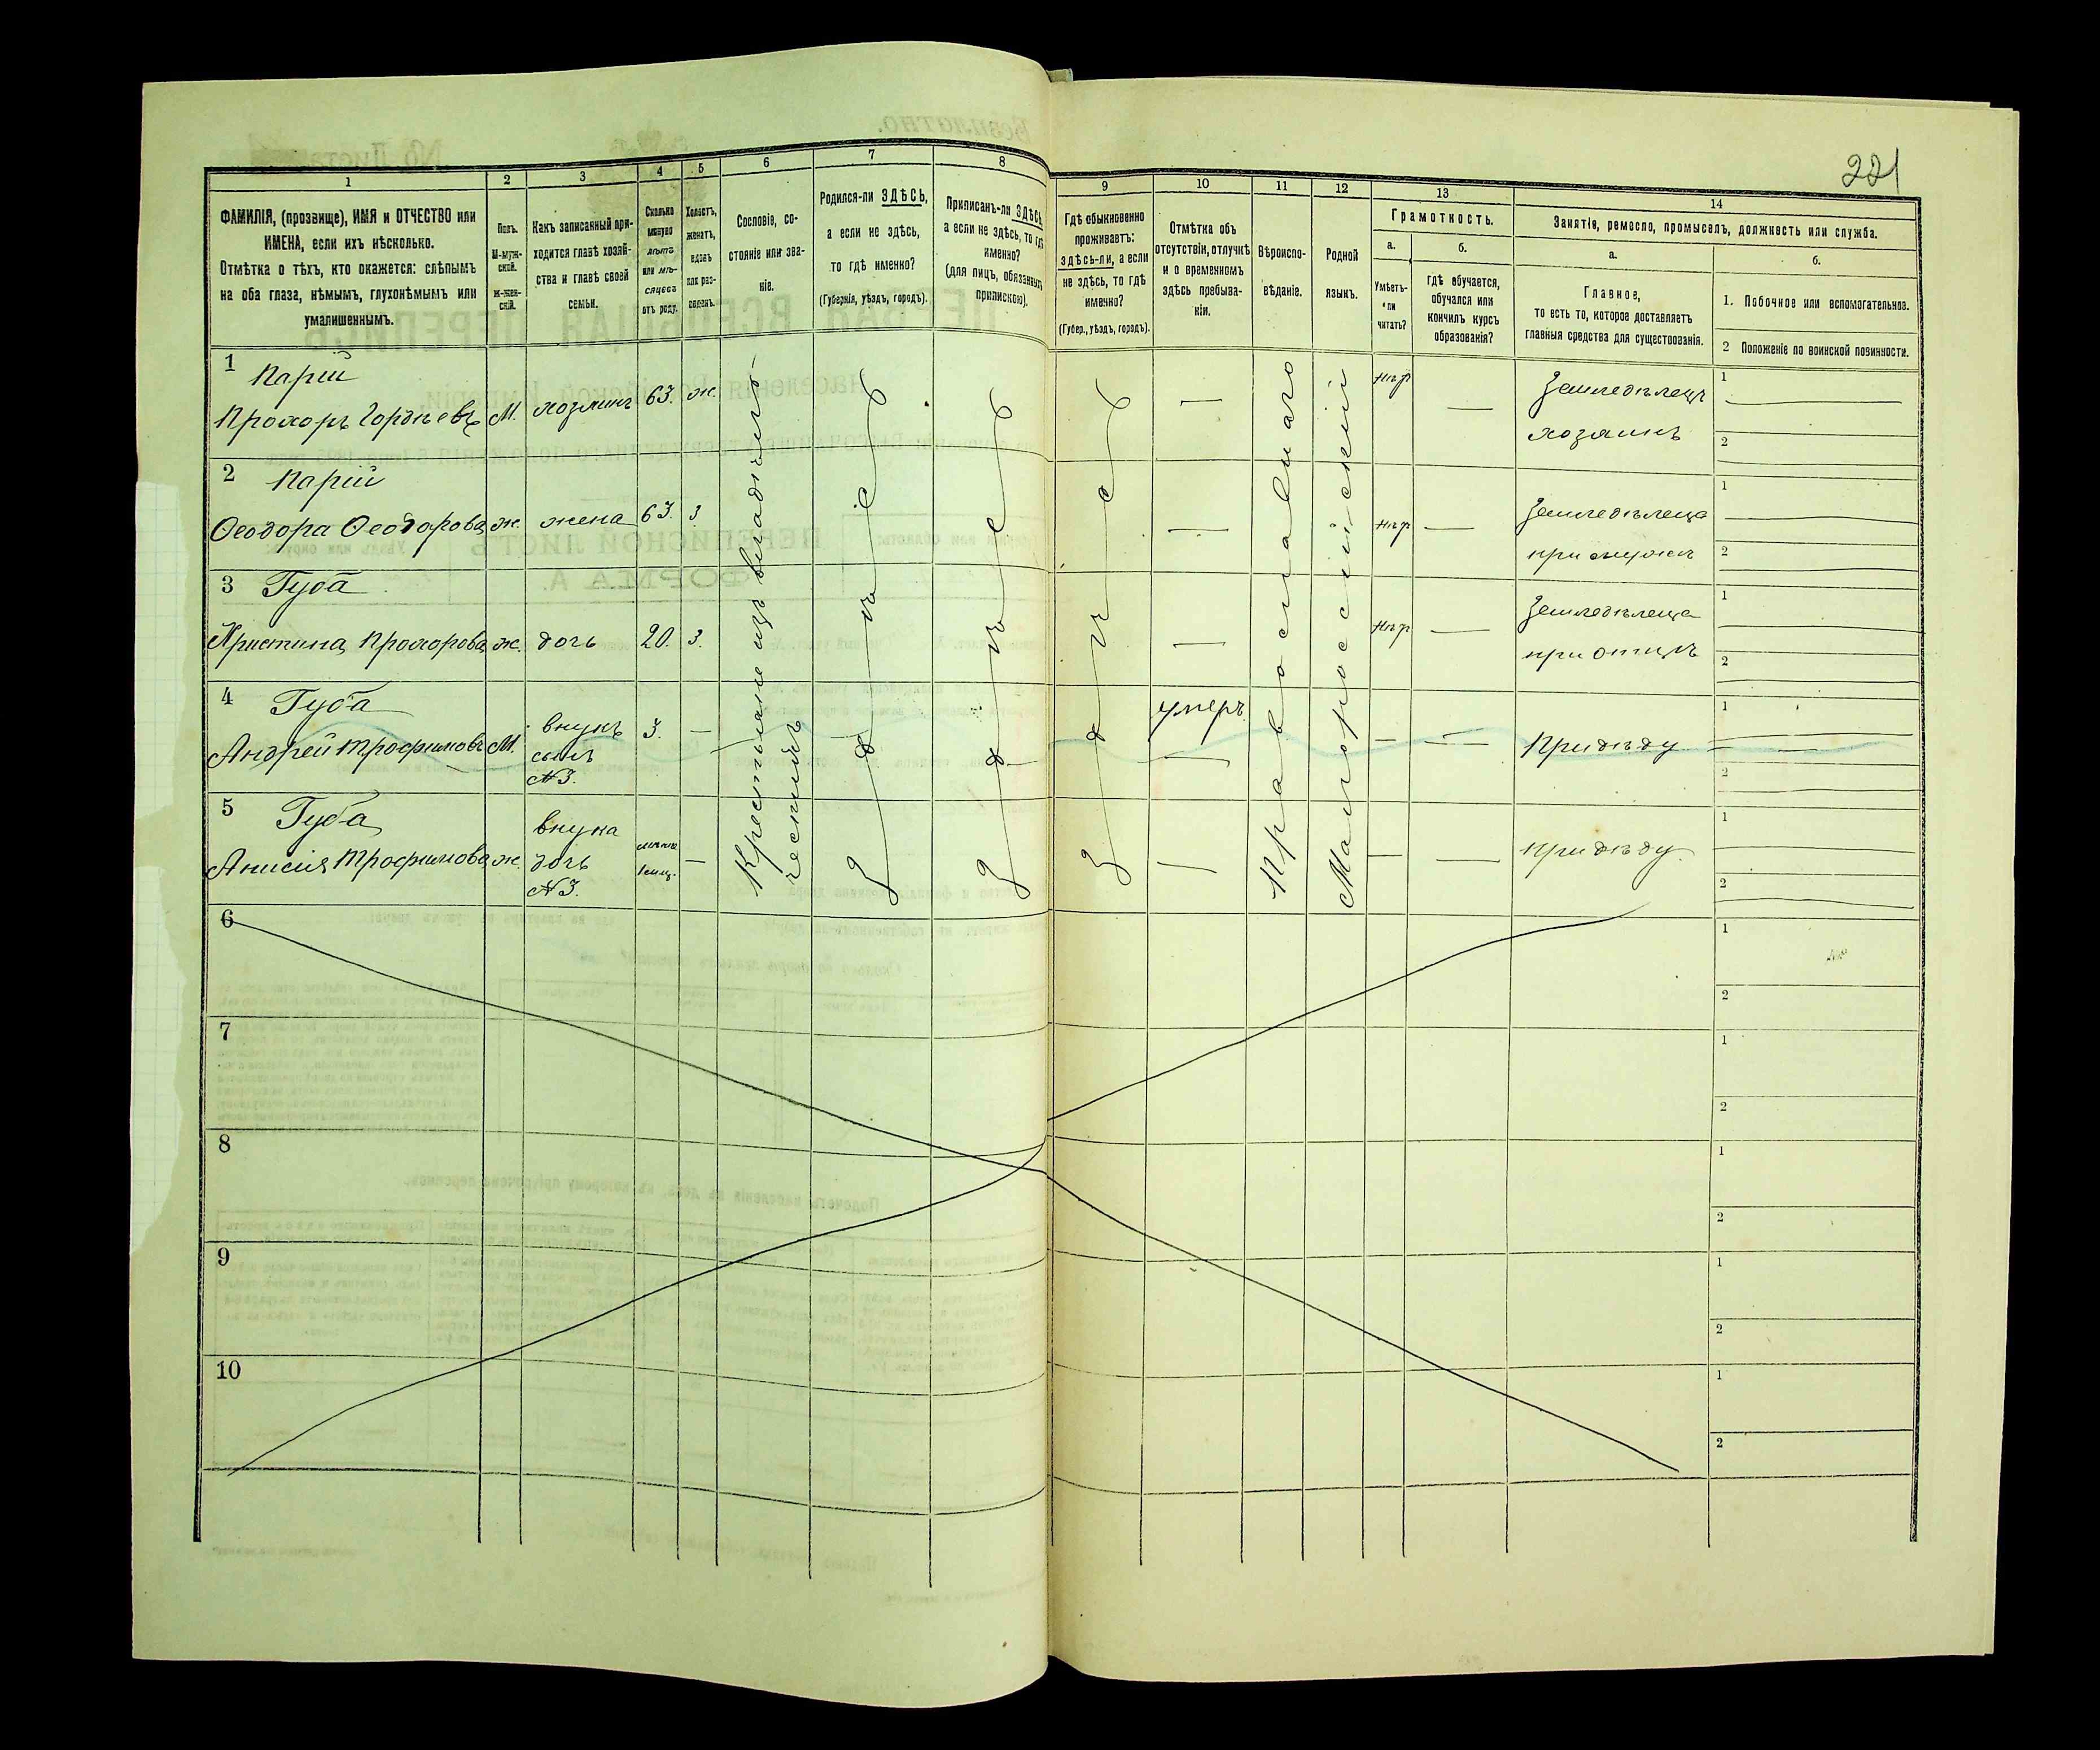 221
1
ФАМИЛІЯ, (прозвище), ИМЯ и ОТЧЕСТВО или
ИМЕНА, если ихъ нѣсколько.
Отмѣтка о тѣхъ, кто окажется: слѣпымъ
на оба глаза, нѣмымъ, глухонѣмымъ или
умалишеннымъ.
2
Полъ.
М-муж-
ской.
Ж-жен-
скій.
3
Какъ записанный при-
ходится главѣ хозяй-
ства и главѣ своей
семьи.
4
Сколько
минуло
лѣтъ
или мѣ-
сяцевъ
отъ роду.
5
Холостъ,
женатъ,
вдовъ
или раз-
веденъ.
6
Сословіе, со-
стояніе или зва-
ніе.
7
Родился-ли ЗДѢСЬ,
а если не здѣсь,
то гдѣ именно?
(Губернія, уѣздъ, городъ).
8
Приписанъ-ли ЗДѢСЬ,
а если не здѣсь, то гдѣ
именно?
(для лицъ, обязанныхъ
припискою).
9
Гдѣ обыкновенно
проживаетъ:
здѣсь-ли, а если
не здѣсь, то гдѣ
именно?
(Губер., уѣздъ, городъ).
10
Отмѣтка объ
отсутствіи, отлучкѣ
и о временномъ
здѣсь пребыва-
ніи.
11
Вѣроиспо-
вѣданіе.
12
Родной
языкъ.
13
Грамотность.
а.
Умѣетъ-
ли
читать?
б.
гдѣ обучается,
обучался или
кончилъ курсъ
образованія?
14
Занятіе, ремесло, промыселъ, должность или служба.
а.
Главное,
то есть то, которое доставляетъ
главныя средства для существованія.
б.
1. Побочное или вспомогательное.
2 Положеніе по воинской повинности.
1 Парій
Прохоръ Гордѣевъ М. хозяинъ 63. ж.
Крестьяне изъ владѣльческихъ
здѣсь
здѣсь
здѣсь
—
Православнаго
Малороссійскій
нѣт
—
Земледѣлецъ
хозяинъ
1
2
2 Парій
Ѳеодора Ѳеодорова ж. жена 63. з.
—
—
Земледѣлеца
при мужѣ
1
2
3 Губа
Христина Прохорова ж. дочь 20. з.
—
—
Земледѣлеца
при отцѣ
1
2
4 Губа
Андрей Трофимовъ М. внукъ
сынъ
№3.
3. —
умеръ
—
— —
При дѣду
1
2
5 Губа
Анисія Трофимова ж. внука
дочь
№3.
—
—
— —
при дѣду.
1
2
6
1
2
7
1
2
8
1
2
9
1
2
10
1
2